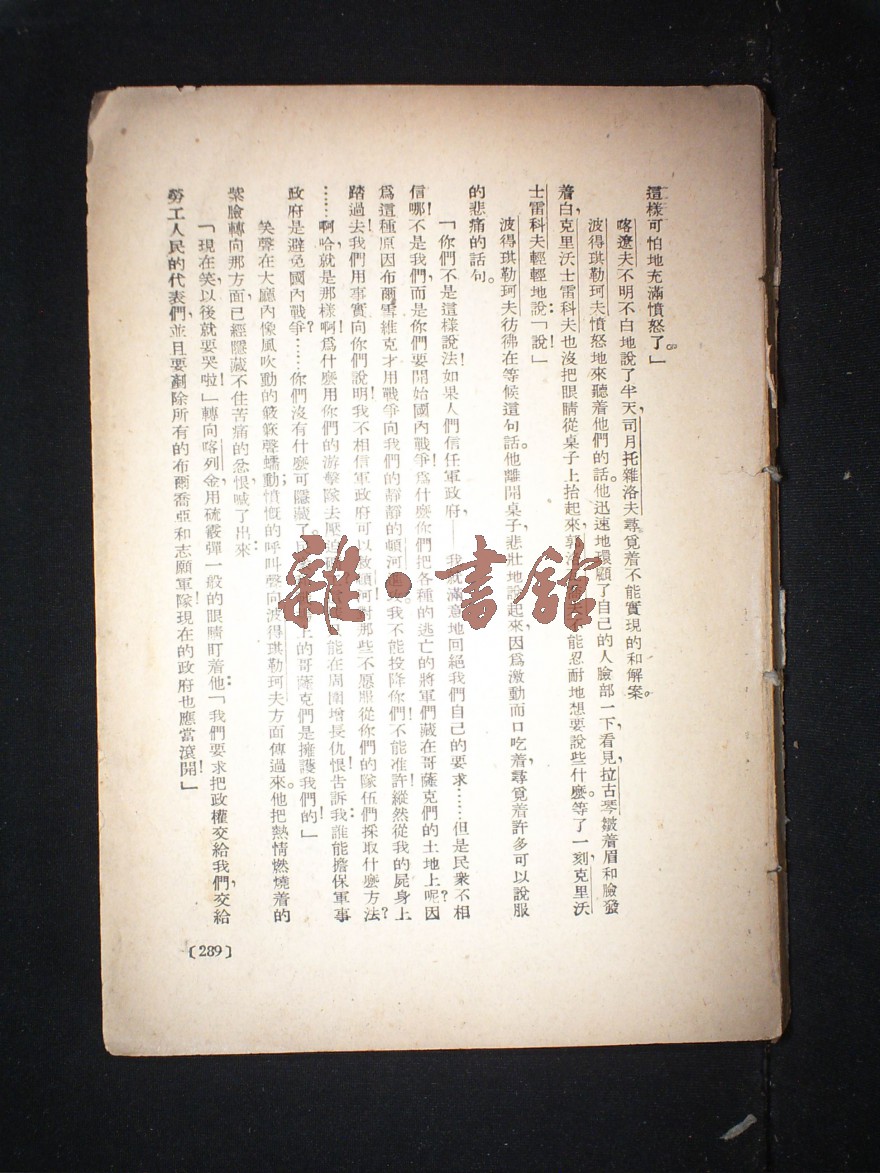 這樣可怕地充滿憤怒了。」
喀遼夫不明不白地說了半天,司月托雜洛夫尋覓着不能實現的和解案。
波得琪勒珂夫憤怒地來聽着他們的話。他迅速地環顧了自己的人臉部一下,看見,拉古琴皺着眉和臉發
着白,克里沃士雷科夫也沒把眼睛從桌子上抬起來,郭 能忍耐地想要說些什麽。等了一刻,克里沃
士雷科夫輕輕地說:「說!」
波得琪勒珂夫彷彿在等候這句話。他離開桌子,悲壯地說起來,因爲激動而口吃着,尋覓着許多可以說服
的悲痛的話句。
「你們不是這樣說法!如果人們信任軍政府——我就滿意地回絕我們自己的要求……但是民衆不相
信哪!不是我們,而是你們要開始國內戰爭!爲什麽你們把各種的逃亡的將軍們藏在哥薩克們的土地上呢?因
爲這種原因布爾雪維克才用戰爭向我們的靜靜的頓河進攻。我不能投降你們!不能准許!縱然從我的屍身上
踏過去!我們用事實向你們說明!我不相信軍政府可以救頓河!對那些不愿服從你們的隊伍們採取什麽方法?
……啊哈,就是那樣啊!爲什麽用你們的游擊隊去壓迫 能在周圍增長仇恨!告訴我:誰能擔保軍事
政府是避免國內戰爭?……你們沒有什麽可隱藏了。 上的哥薩克們是擁護我們的!」
笑聲在大廳內像風吹動的簌簌聲蠕動;憤慨的呼叫聲向波得琪勒珂夫方面傳過來。他把熱情燃燒着的
紫臉轉向那方面,已經隱藏不住苦痛的忿恨,喊了出來:
「現在,笑,以後就要哭啦!」轉向喀列金,用硫霰彈一般的眼睛盯着他:「我們要求把政權交給我們,交給
勞工人民的代表們,並且要剷除所有的布爾喬亞和志願軍隊!現在的政府也應當滾開!」
〔289〕
雜·書館